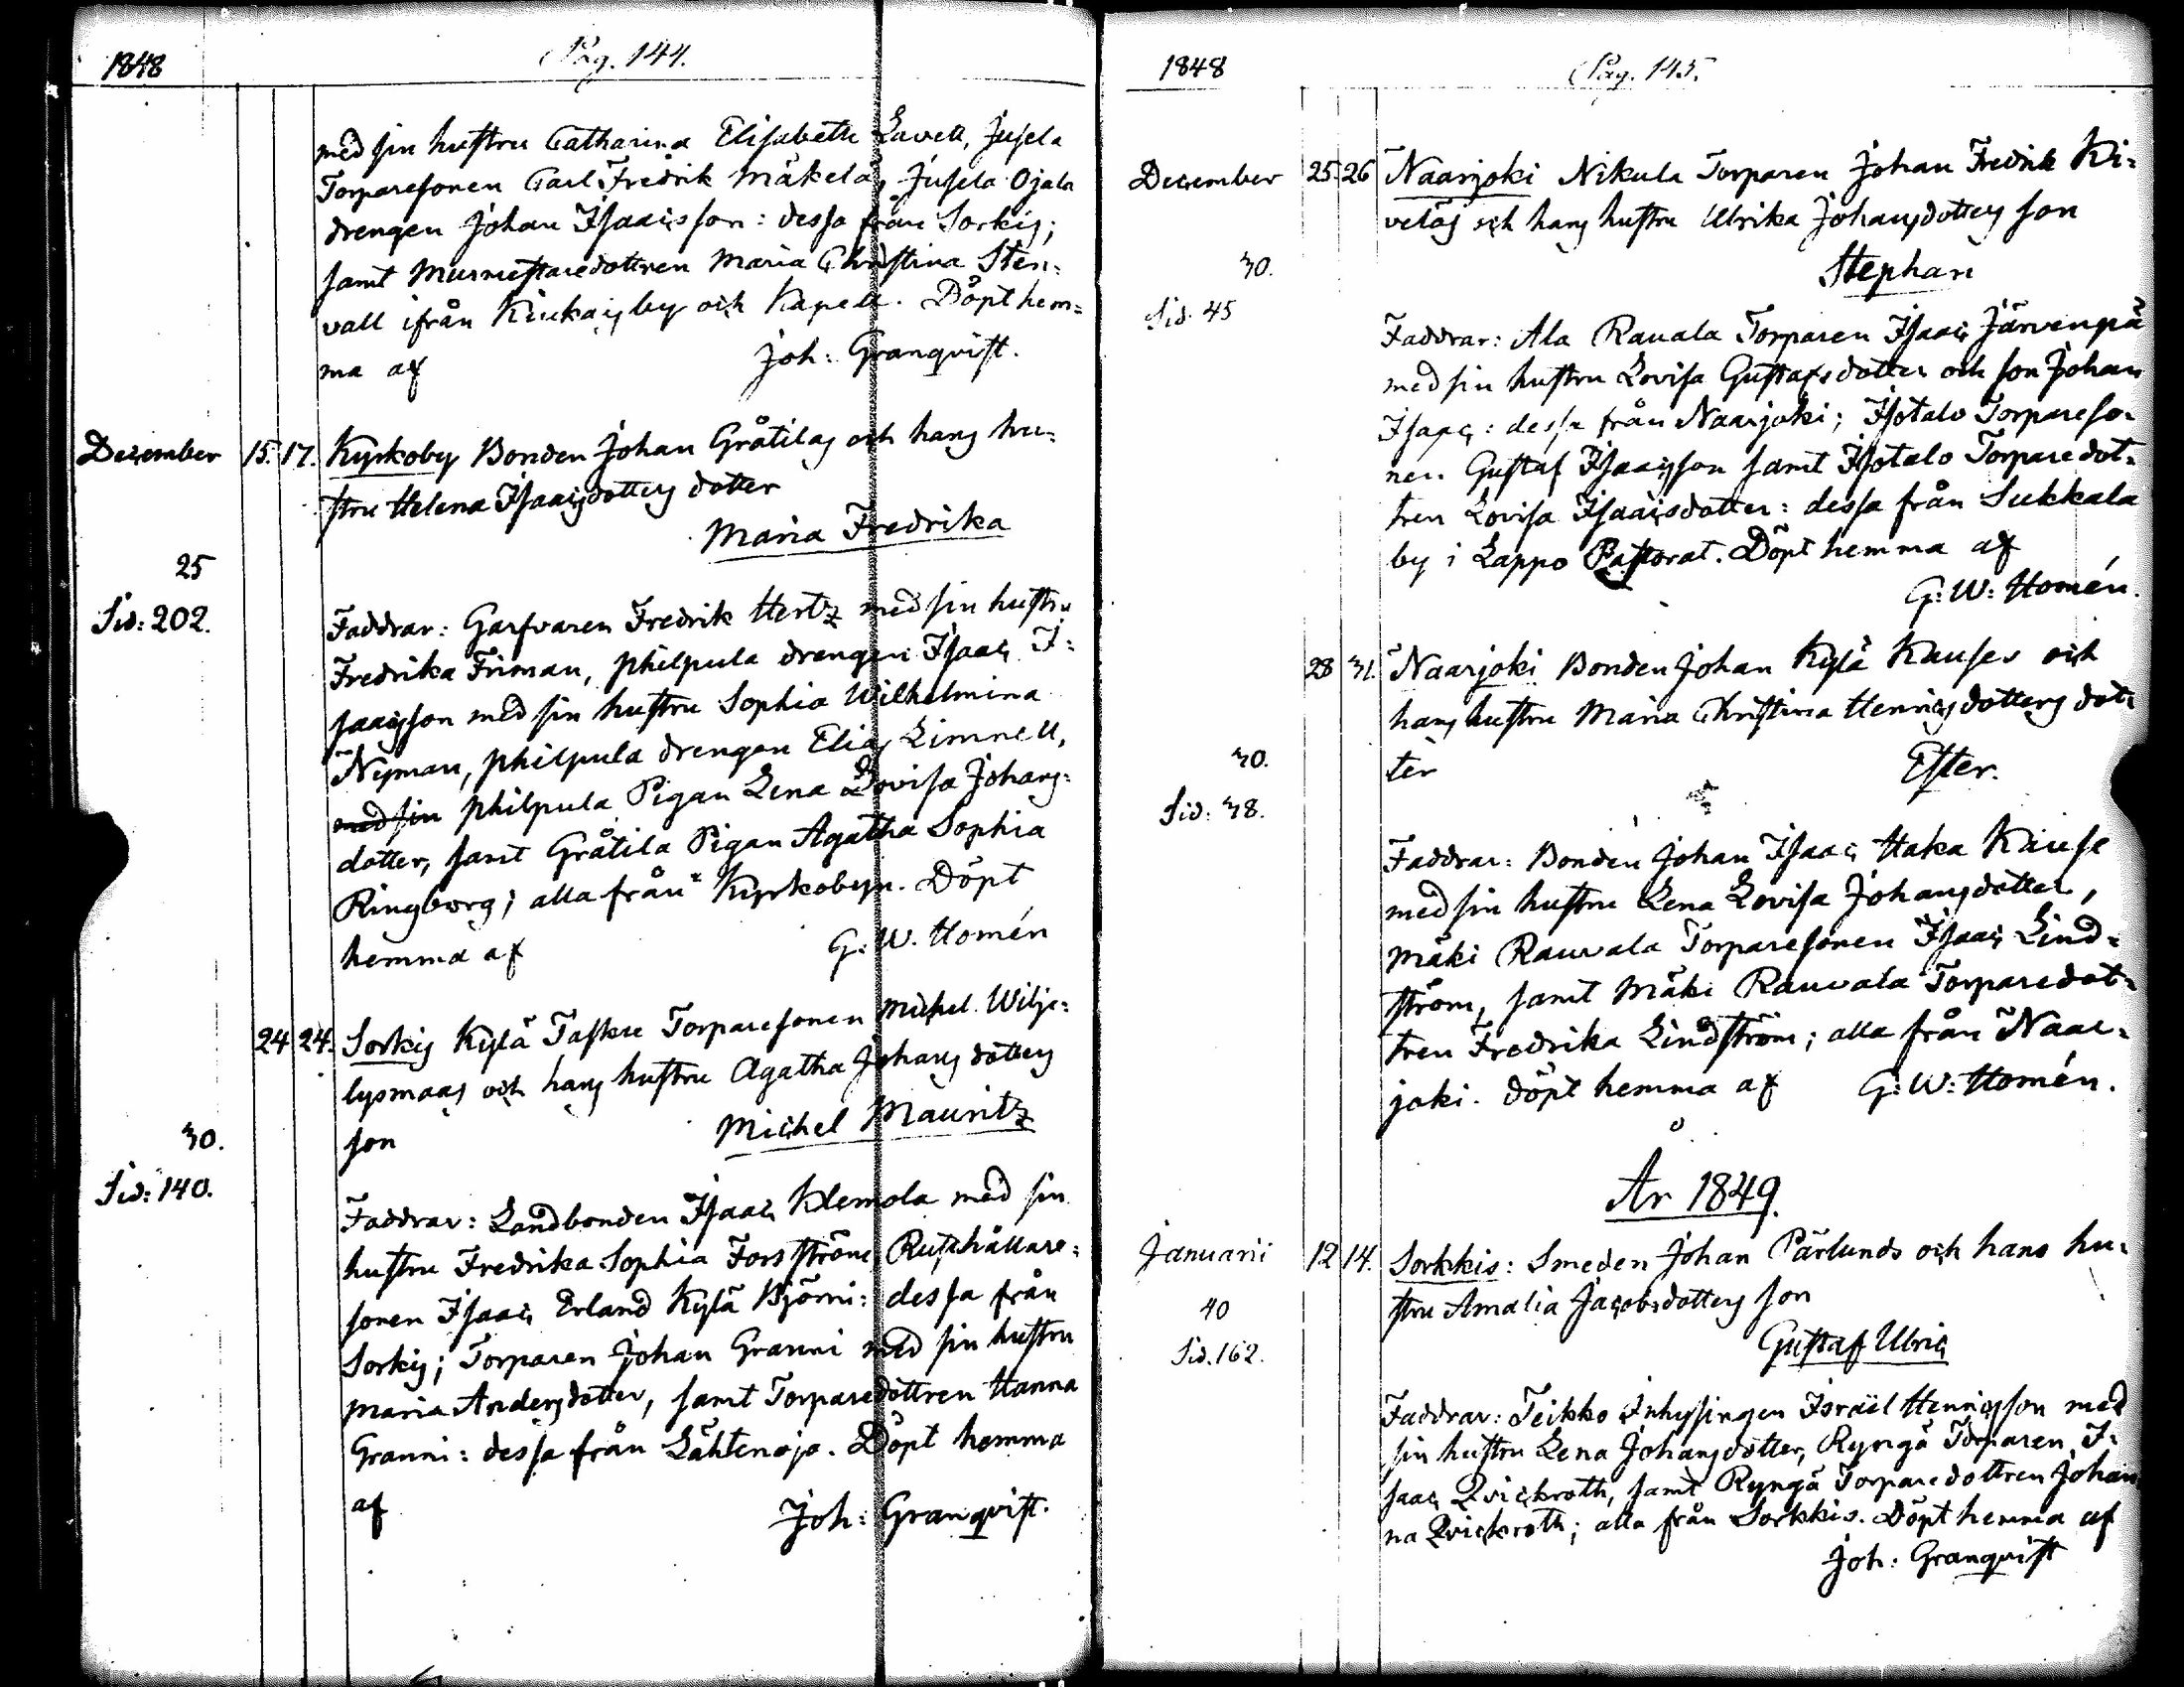 1848
Pag. 144.
med sin hustru Catharina Elisabeth Lavell, Jusela
Torparesonen Carl Fredrik Mäkelä, Jusela Ojala
drengen Johan Isaacsson: dessa från Sorkis;
samt Murmestaredottren Maria Christina Sten-
vall ifrån Kiukais by och Kapell. Döpt hem-
ma af Joh: Granqvist.
December 15. 17. Kyrkoby Bonden Johan Gråtilas och hans hu-
stru Helena Isaacsdotters dotter
Maria Fredrika
25
Sid: 202.
Faddrar: Garfvaren Fredrik Hertz med sin hustru
Fredrika Friman, Philpula drengen Isaac I-
saacsson med sin hustru Sophia Wilhelmina
Nyman, Philpula drengen Elias Limnell,
med sin Philpula Pigan Lena Lovisa Johans-
dotter, samt Gråtila Pigan Agatha Sophia
Ringborg; alla från Kyrkobyn. Döpt
hemma af G: W. Homén
24 24. Sorkis Kylä Tasku Torparesonen Michel Wilje-
lysmaas och hans hustru Agatha Johans dotters
son Michel Mauritz
30.
Sid: 140.
Faddrar: Landbonden Isaac Klemola med sin
hustru Fredrika Sophia Forsström, Rusthållare-
sonen Isaac Erland Kylä Björni: dessa från
Sorkis; Torparen Johan Granni med sin hustru
Maria Andersdotter, samt Torparedottren Hanna
Granni: dessa från Lähtenoja. Döpt hemma
af Joh: Granqvist.
1848
Pag. 145.
December 25. 26 Naarjoki Nikula Torparen Johan Fredrik Ki-
veläs och hans hustru Ulrika Johansdotters son
Stephan
30.
Sid. 45
Faddrar: Ala Rauala Torparen Isaac Järvenpä
med sin hustru Lovisa Gustafsdotter och son Johan
Isaac: dessa från Naarjoki; Isotalo Torpareso-
nen Gustaf Isaacsson samt Isotalo Torparedot-
tren Lovisa Isaacsdotter: dessa från Sukkala
by i Lappo Pastorat. Döpt hemma af
G: W: Homén.
28 31. Naarjoki Bonden Johan Kylä Kauses och
hans hustru Maria Christina Henricsdotters dot-
ter Ester.
30.
Sid: 38.
Faddrar: Bonden Johan Isaac Haka Kause
med sin hustru Lena Lovisa Johansdotter,
Mäki Rauvala Torparesonen Isaac Lind-
ström, samt Mäki Rauvala Torparedot-
tren Fredrika Lindström; alla från Naar-
joki. Döpt hemma af G: W: Homén.
År 1849.
Januarii 12 14. Sorkkis: Smeden Johan Pärlunds och hans hu-
stru Amalia Jacobsdotters son
Gustaf Ulric
40
Sid. 162.
Faddrar: Teikko Inhysingen Israël Henricsson med
sin hustru Lena Johansdotter, Ryngä Torparen I-
saac Qvickroth, samt Ryngä Torparedottren Johan
na Qvickroth; alla från Sorkkis. Döpt hemma af
Joh: Granqvist